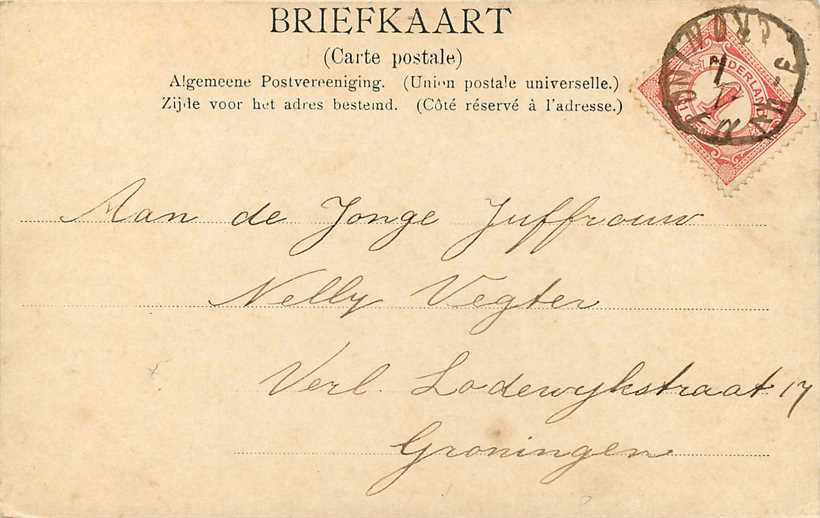 BRIEFKAART
(Carte postale)
Algemeene Postvereeniging. (Union postale universelle.)
Zijde voor het adres bestemd. (Côté réservé à l'adresse.)
NEDERLAND
1
Aan de Jonge Juffrouw
Nelly Vegter
Verl. Lodewijkstraat 17
Groningen